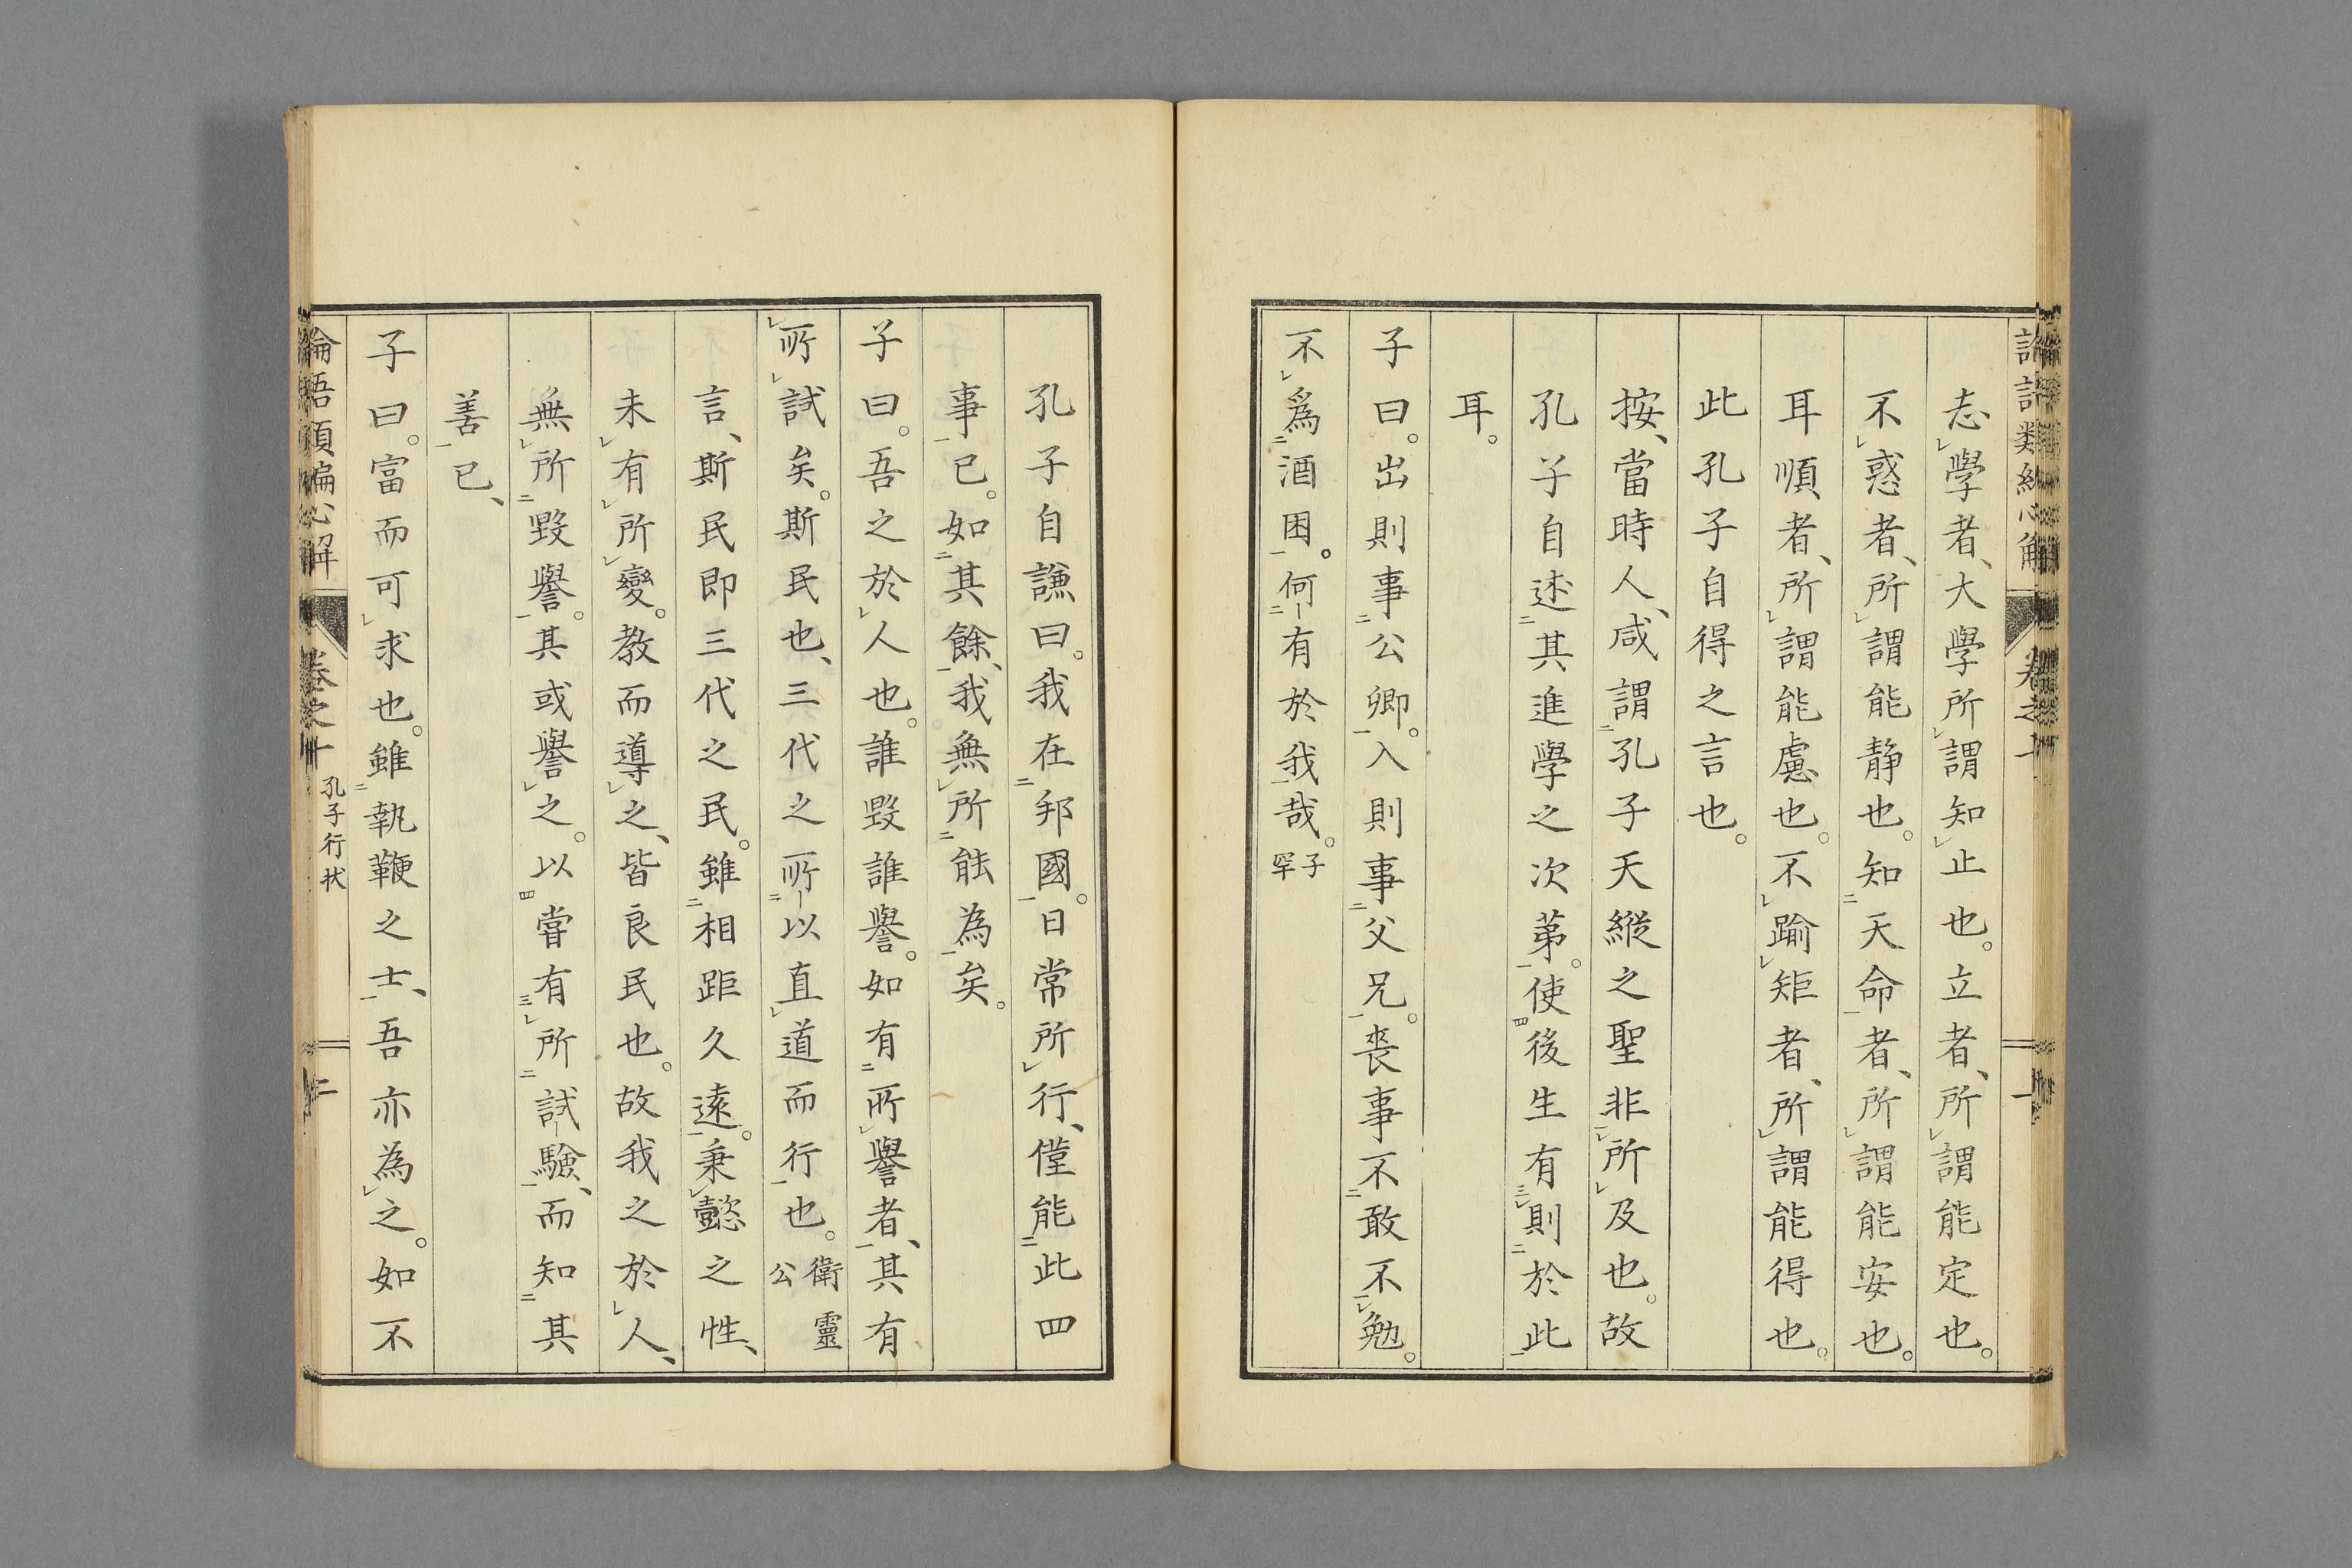 志學者、大學所謂知止也。立者、所謂能定也。
不惑者、所謂能静也。知天命者、所謂能安也。
耳順者、所謂能慮也。不踰矩者、所謂能得也。
此孔子自得之言也。
按、當時人、咸謂孔子天縱之聖非所及也。故
孔子自述其進學之次第。使後生有則於此
耳。
子曰。出則事公卿。入則事父兄。喪事不敢不勉。
不爲酒困。何有於我哉。子罕
孔子自謙曰。我在邦國。日常所行、僅能此四
事已。如其餘、我無所能為矣。
子曰。吾之於人也。誰毀誰譽。如有所譽者、其有
所試矣。斯民也、三代之所以直道而行也。衛靈公
言、斯民即三代之民。雖相距久遠。秉懿之性、
未有所變。教而導之、皆良民也。故我之於人、
無所毀譽。其或譽之。以甞有所試驗、而知其
善已、
子曰。富而可求也。雖執鞭之士、吾亦為之。如不
心解 卷之 孔子行状 二